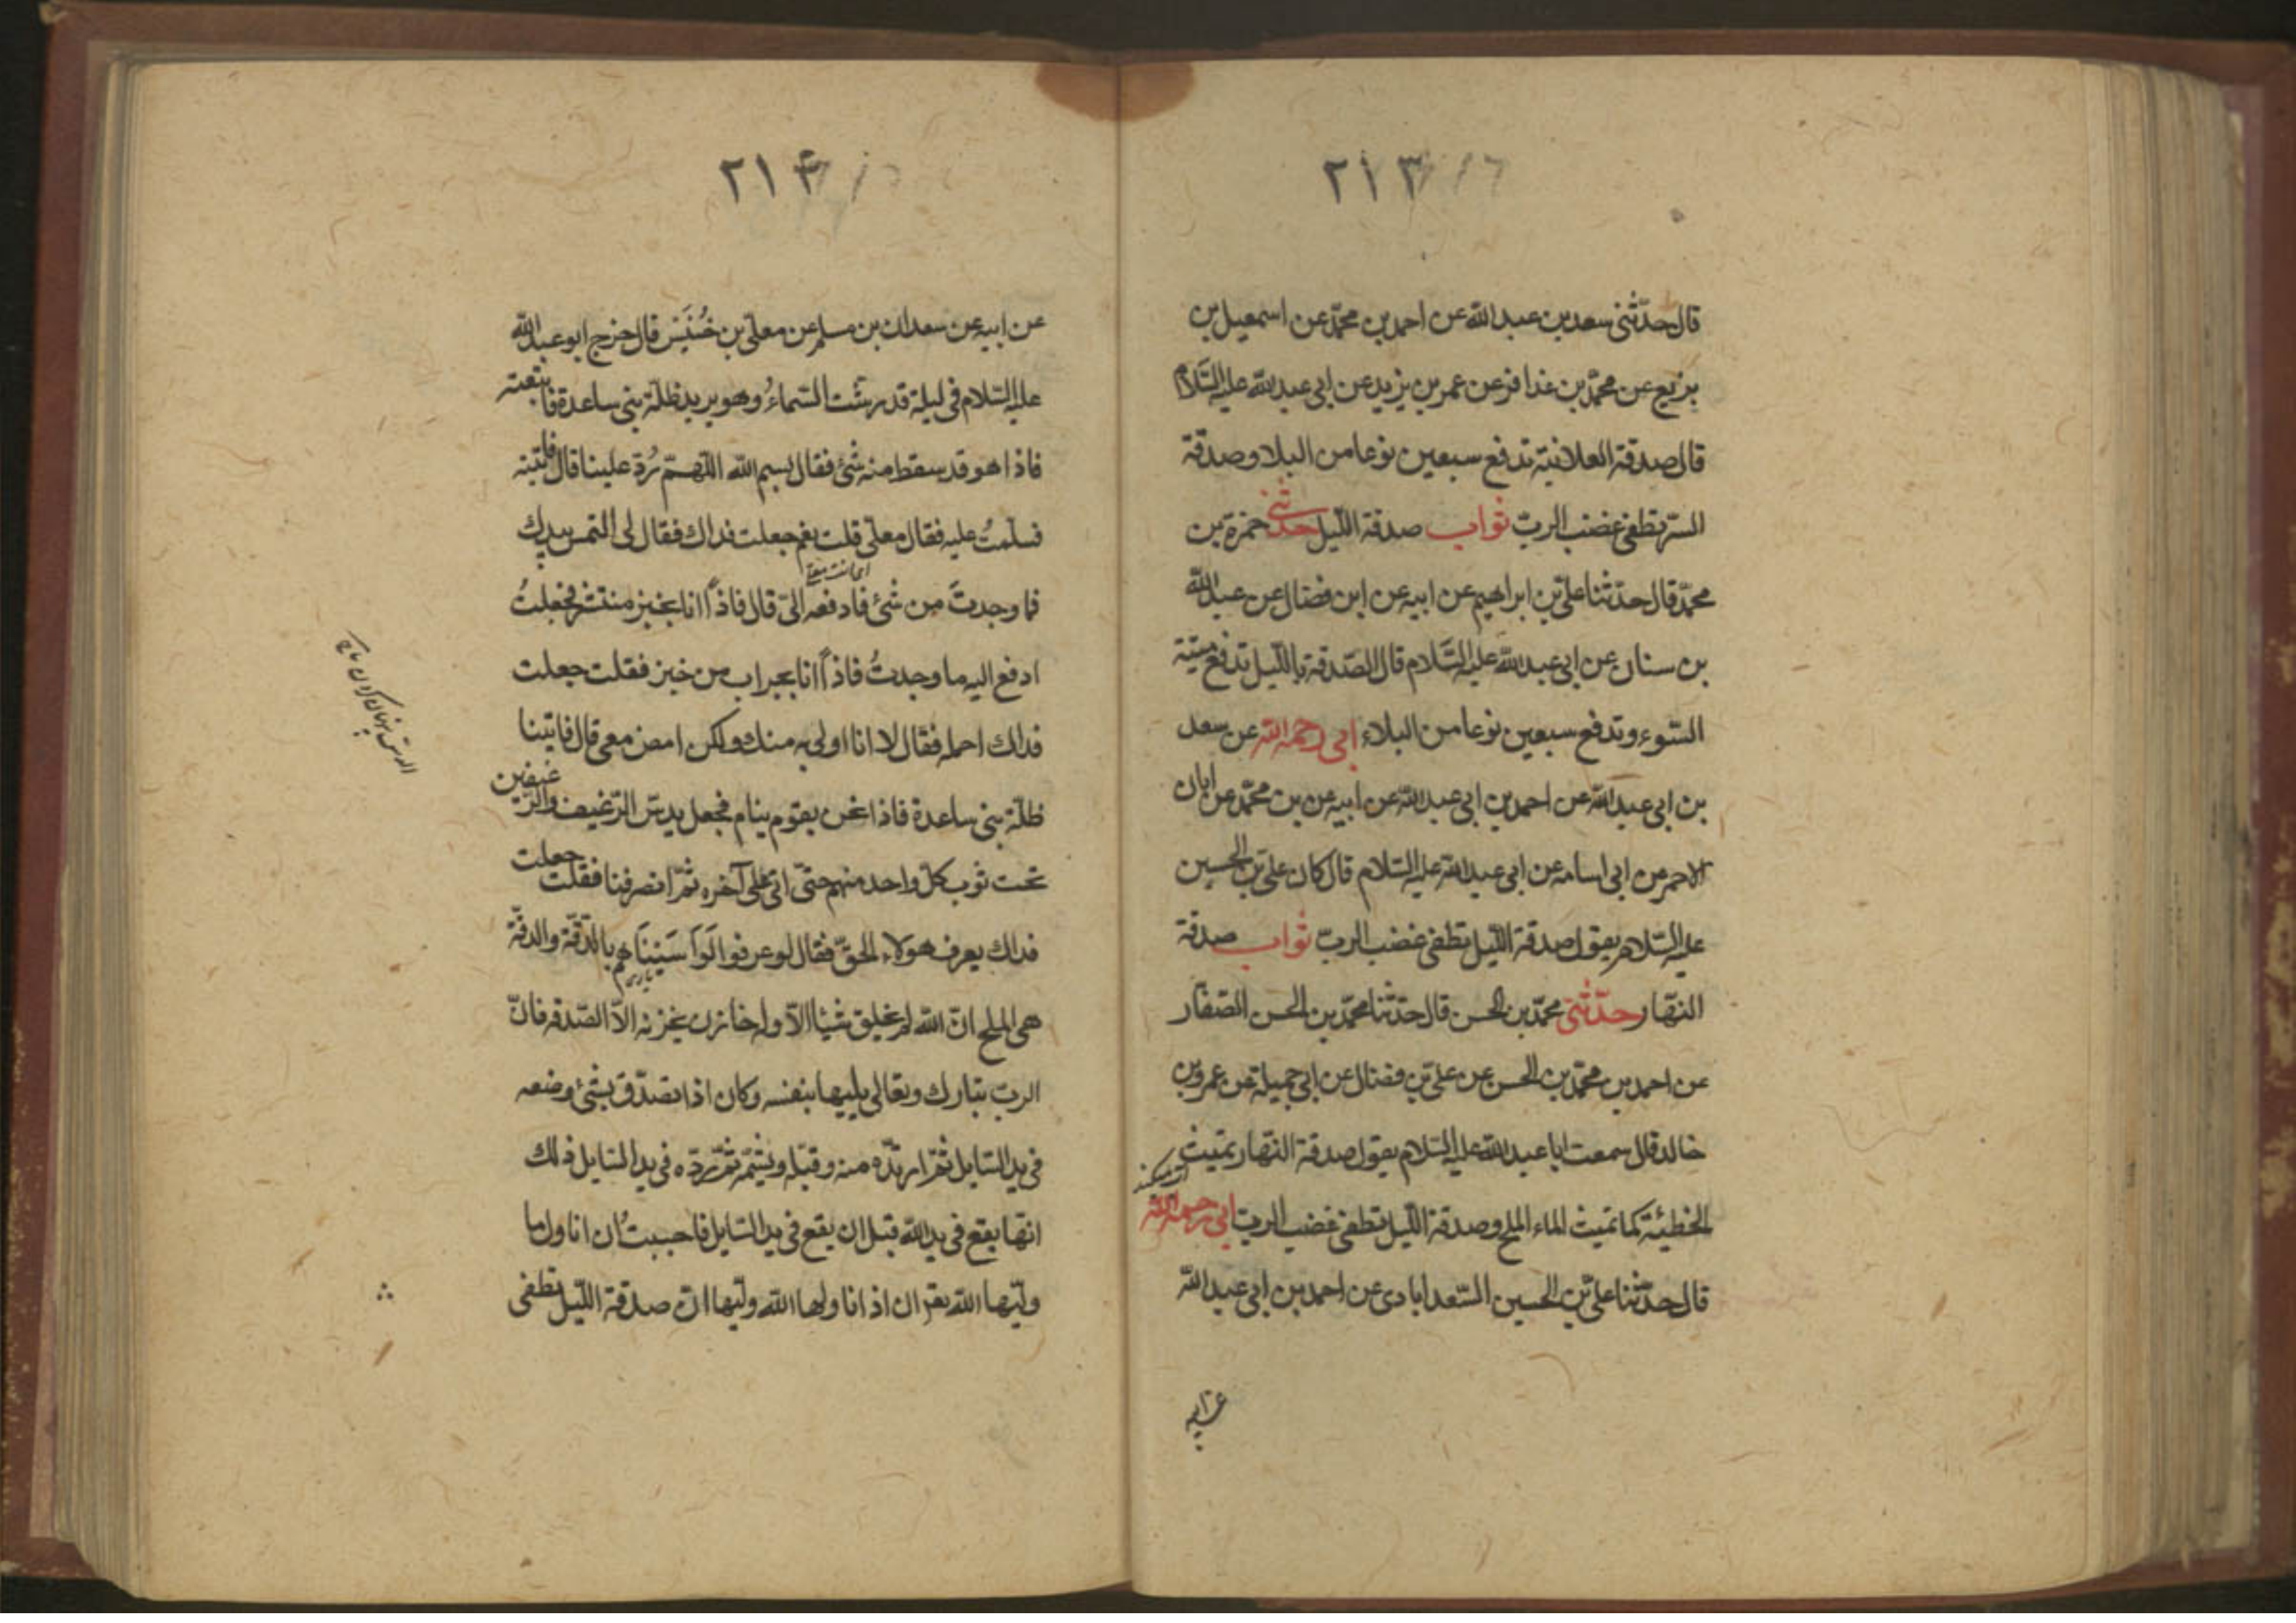 ٢١٣
قال حدّثنى سعد بن عبد الله عن احمد بن محمّد عن اسمعيل بن
بزيع عن محمّد بن عذافر عن عمر بن يزيد عن ابى عبد الله عليه السّلام
قال صدقة العلانية تدفع سبعين نوعا من البلا وصدقة
السّر تطفى غضب الربّ ثواب صدقة اللّيل حدّثنى حمزة بن
محمّد قال حدّثنا علىّ بن ابراهيم عن ابيه عن ابن فضال عن عبد الله
بن سنان عن ابى عبد الله عليه السّلام قال الصّدقة باللّيل تدفع ميتة
السّوء وتدفع سبعين نوعا من البلاء ابى رحمه الله عن سعد
بن ابى عبد الله عن احمد بن ابى عبد الله عن ابيه عن بن محمّد عن ابان
الاحمر عن ابى اسامه عن ابى عبد الله عليه السّلام قال كان علىّ بن الحسين
عليه السّلام يقول صدقة اللّيل تطفى غضب الربّ ثواب صدقة
النّهار حدّثنى محمّد بن الحسن قال حدّثنا محمّد بن الحسن الصّفار
عن احمد بن محمّد بن الحسن عن علىّ بن فضال عن ابى جميلة عن عمرو بن
خالد قال سمعت ابا عبد الله عليه السّلام يقول صدقة النّهار تميث
الخطيئة كما تميث الماء الملح وصدقة اللّيل تطفى غضب الربّ ابى رحمه الله
قال حدّثنا علىّ بن الحسين السّعدابادى عن احمد بن ابى عبد الله
عن ابيه
٢١۴
عن ابيه عن سعدان بن مسلم عن معلّى بن خُنَيْس قال خرج ابو عبد الله
عليه السّلام فى ليلة قد رشّت السّماءُ وهو يريد ظلّة بنى ساعدة فاتبعته
فاذا هو قد سقط منه شئ فقال بسم الله اللّهمّ رُدّ علينا قال فاتيته
فسلّمتُ عليه فقال معلّى قلت نعم جعلت فداك فقال لى التمس بيدك
فما وجدتَ من شئ فادفعه الىّ قال فاذاً انا بخبز منتشر فجعلتُ
ادفع اليه ما وجدتُ فاذاً انا بجراب من خبز فقلت جعلت
فداك احمله فقال لا انا اولى به منك ولكن امض معى قال فاتينا
ظلّة بنى ساعدة فاذا نحن بقوم ينام فجعل يدسّ الرّغيف والرّغيفين
تحت ثوب كلّ واحد منهم حتّى اتى على آخره ثمّ انصرفنا فقلت جعلت
فداك يعرف هولاء الحقّ فقال لو عرفوا لَوَاسَيْنَاهُم بالدّقّة والدقّة
هى الملح انّ الله لم يخلق شيئا الّا وله خازن يخزنه الّا الصّدقه فانّ
الربّ تبارك وتعالى يليها بنفسه وكان اذا تصدّق بشئ وضعه
فى يد السّايل ثمّ ارتدّه منه وقبّله ويشمّه ثمّ ردّه فى يد السّايل ذلك
انّها يقع فى يد الله قبل ان يقع فى يد السّايل فاحببتُ ان اناول ما
وليّها الله بقر ان اذ اناولها الله وليّها انّ صدقة اللّيل تطفى